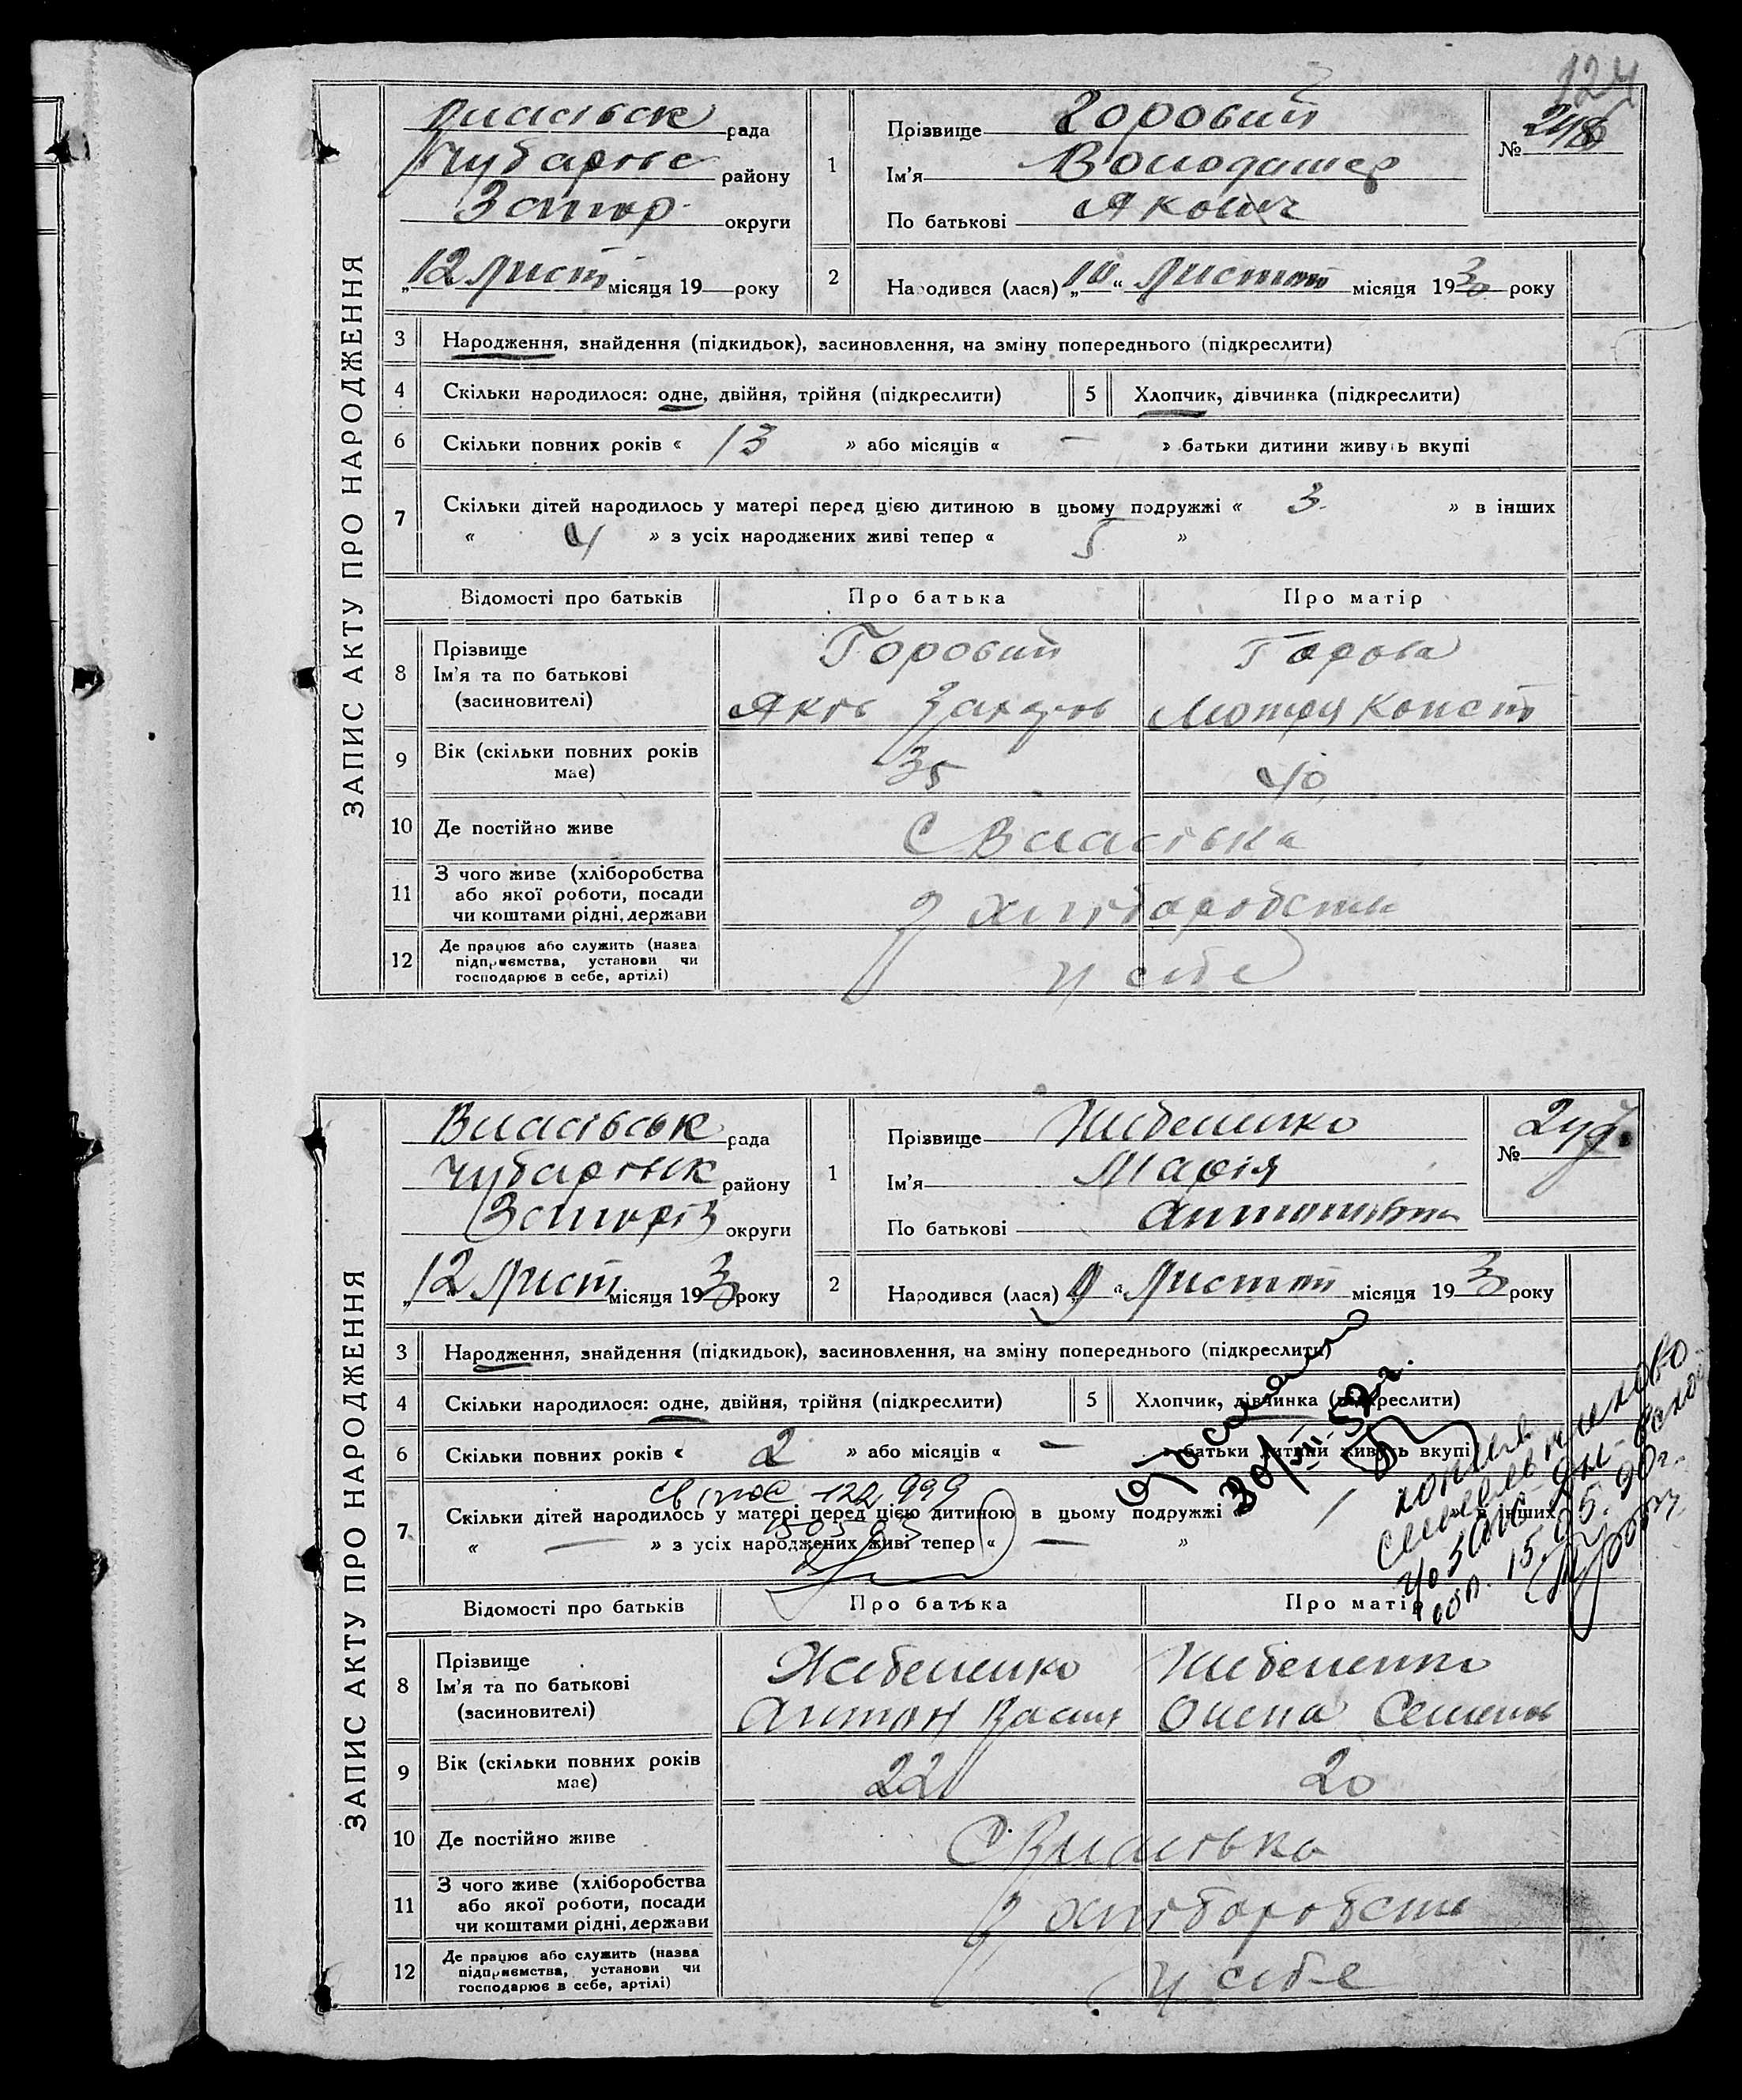 124
ЗАПИС АКТУ ПРО НАРОДЖЕННЯ
рада
району
Запор. округи
„12 Лист місяця 19 року
1
Прізвище Горовий
Ім'я Володимер
По батькові Якович
№ 248
2
Народився (лася) „10" Листоп місяця 1930 року
3 Народження, знайдення (підкидьок), засиновлення, на зміну попереднього (підкреслити)
4 Скільки народилося: одне, двійня, трійня (підкреслити)
5 Хлопчик, дівчинка (підкреслити)
6 Скільки повних років « 13 » або місяців « — » батьки дитини живуть вкупі
7 Скільки дітей народилось у матері перед цією дитиною в цьому подружжі « 3 » в інших
« 4 » з усіх народжених живі тепер « 5 »
Відомості про батьків Про батька Про матір
8 Прізвище
Ім'я та по батькові
(засиновителі)
Горовий
Яків Захаров
Горова
Мотря Конст
9 Вік (скільки повних років
має)
35
40
10 Де постійно живе
С Власівка
11 З чого живе (хліборобства
або якої роботи, посади
чи коштами рідні, держави
З хліборобств
12 Де працює або служить (назва
підприємства, установи чи
господарює в себе, артілі)
У себе
ЗАПИС АКТУ ПРО НАРОДЖЕННЯ
Власівськ рада
Чубарівськ району
Запоріз округи
„12 Лист місяця 1930 року
1
Прізвище
Ім'я Марія
По батькові Антонівна
№ 249
2
Народився (лася) „9" Листоп місяця 1930 року
3 Народження, знайдення (підкидьок), засиновлення, на зміну попереднього (підкреслити)
4 Скільки народилося: одне, двійня, трійня (підкреслити)
5 Хлопчик, дівчинка (підкреслити)
6 Скільки повних років « 2 » або місяців « — » батьки дитини живуть вкупі
30/III-52г.
7 Скільки дітей народилось у матері перед цією дитиною в цьому подружжі — в інших
« — » з усіх народжених живі тепер « — »
15.05.90г.
Відомості про батьків Про батька Про матір
8 Прізвище
Ім'я та по батькові
(засиновителі)
Антон Васил
Олена Семенов
9 Вік (скільки повних років
має)
22
20
10 Де постійно живе
С Власівка
11 З чого живе (хліборобства
або якої роботи, посади
чи коштами рідні, держави
З хліборобств
12 Де працює або служить (назва
підприємства, установи чи
господарює в себе, артілі)
У себе